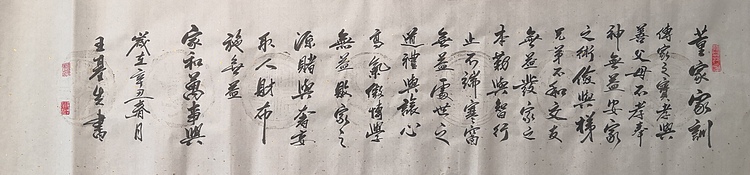 董家家訓
傳家之寶孝與
善父母不孝奉
神無益安家
之術俊與悌
兄弟不和交友
無益發家之
本勤與智行
止不端寒窗
無益處世之
道禮與讓心
高氣傲博學
無益敗家之
源賭與奢妄
取人財布
施無益
家和萬事興
歲在辛丑春月
王基生書